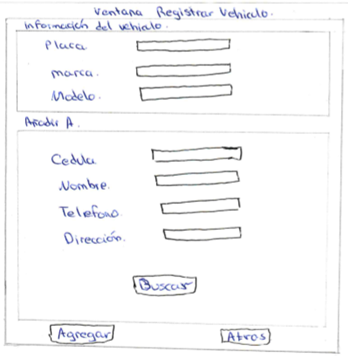 Ventana Registrar Vehiculo.
Información del vehiculo.
Placa
marca.
Modelo.
Añadir A.
Cedula.
Nombre.
Telefono.
Dirección.
Buscar
Agregar Atros